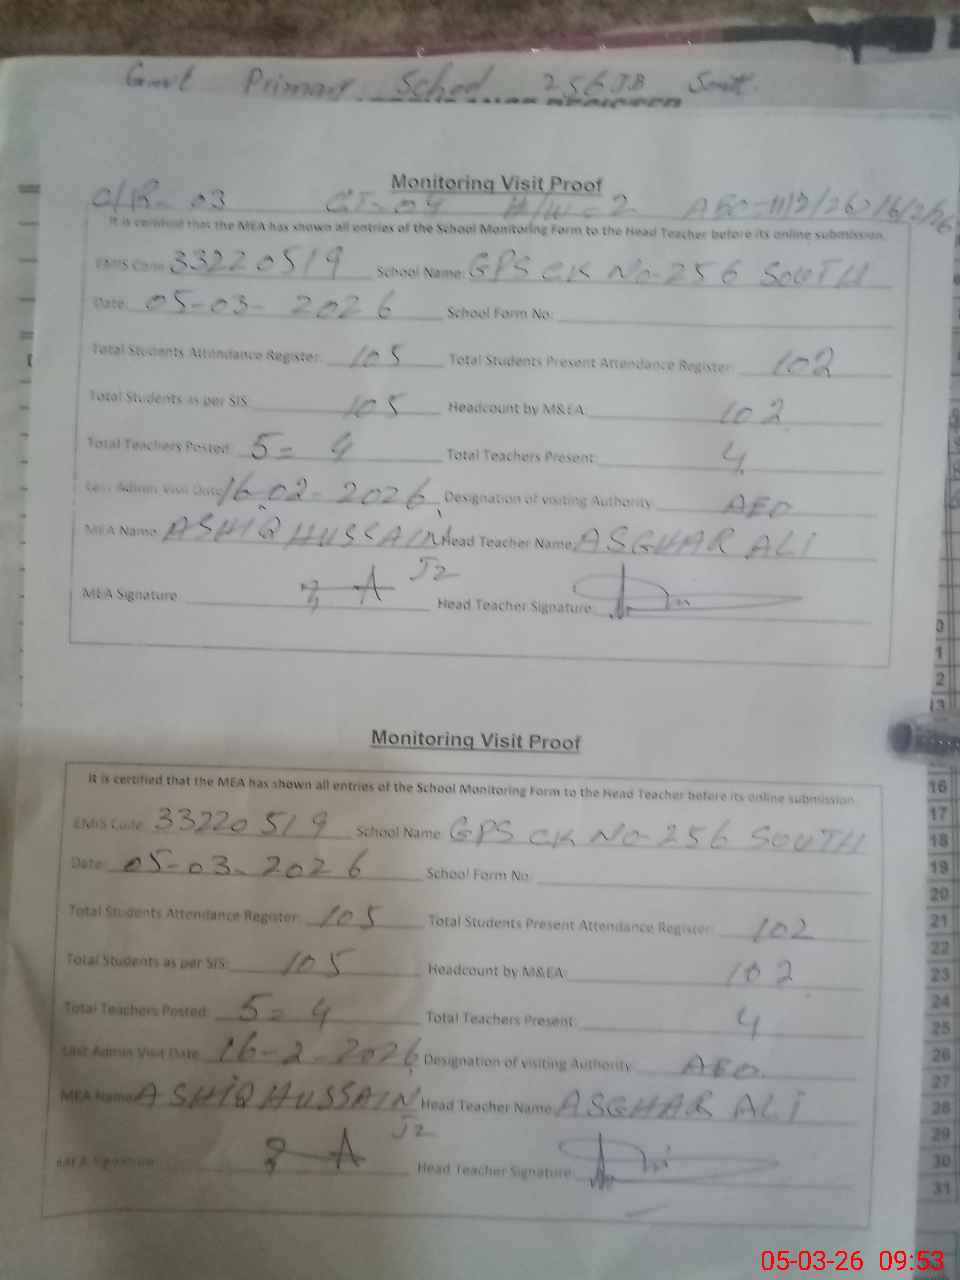 Govt Primary School 256JB South.
Monitoring Visit Proof
C/R- 03 CT-04 H/W=2 AEO-11/2/26>16/2/26
It is certified that the MEA has shown all entries of the School Monitoring Form to the Head Teacher before its online submission.
EMIS Code 33220519 School Name: GPS CK No-256 SOUTH
Date: 05-03-2026 School Form No:
Total Students Attendance Register: 105 Total Students Present Attendance Register: 102
Total Students as per SIS: 105 Headcount by M&EA: 102
Total Teachers Posted: 5= 4 Total Teachers Present: 4
Last Admin Visit Date 16-02-2026 Designation of visiting Authority AEO
MEA Name ASHIQ HUSSAIN Head Teacher Name ASGHAR ALI
J2
MEA Signature Head Teacher Signature:
Monitoring Visit Proof
It is certified that the MEA has shown all entries of the School Monitoring Form to the Head Teacher before its online submission
EMIS Code 33220519 School Name GPS CK No-256 SOUTH
Date: 05-03-2026 School Form No:
Total Students Attendance Register: 105 Total Students Present Attendance Register: 102
Total Students as per SIS: 105 Headcount by M&EA: 102
Total Teachers Posted: 5= 4 Total Teachers Present: 4
Last Admin Visit Date 16-2-2026 Designation of visiting Authority AEO.
MEA Name ASHIQ HUSSAIN Head Teacher Name ASGHAR ALI
J2
MEA Signature Head Teacher Signature:
0
1
2
13
16
17
18
19
20
21
22
23
24
25
26
27
28
29
30
31
05-03-26 09:53